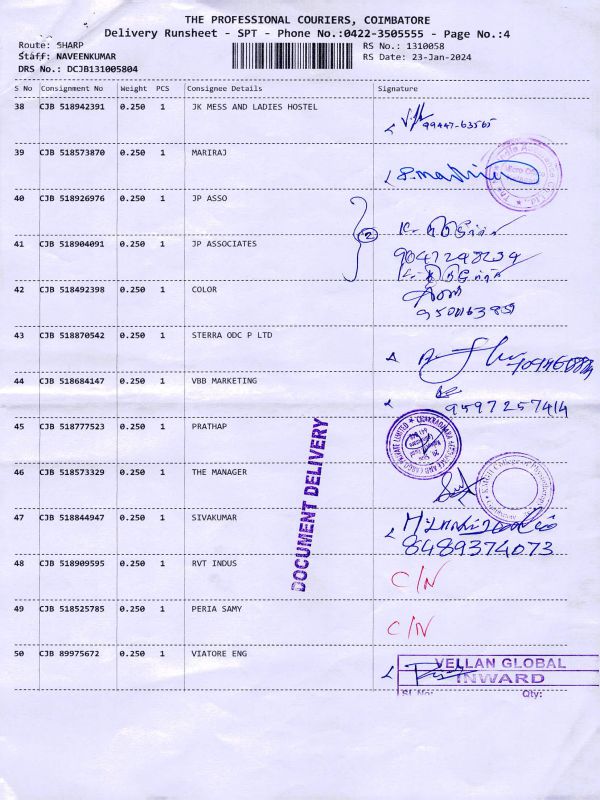 THE PROFESSIONAL COURIERS, COIMBATORE
Delivery Runsheet - SPT - Phone No.:0422-3505555 - Page No.:4
Route: SHARP
RS No.: 1310058
Staff: NAVEENKUMAR
RS Date: 23-Jan-2024
DRS No.: DCJB131005804
S No Consignment No Weight PCS Consignee Details Signature
38 CJB 518942391 0.250 1 JK MESS AND LADIES HOSTEL
99447-63565
39 CJB 518573870 0.250 1 MARIRAJ
40 CJB 518926976 0.250 1 JP ASSO
2
41 CJB 518904091 0.250 1 JP ASSOCIATES
42 CJB 518492398 0.250 1 COLOR
43 CJB 518870542 0.250 1 STERRA ODC P LTD
44 CJB 518684147 0.250 1 VBB MARKETING
9597257414
45 CJB 518777523 0.250 1 PRATHAP
46 CJB 518573329 0.250 1 THE MANAGER
47 CJB 518844947 0.250 1 SIVAKUMAR
8489374073
48 CJB 518909595 0.250 1 RVT INDUS
C/N
49 CJB 518525785 0.250 1 PERIA SAMY
C/N
50 CJB 89975672 0.250 1 VIATORE ENG
VELLAN GLOBAL
INWARD
Sl.No: Qty:
DOCUMENT DELIVERY